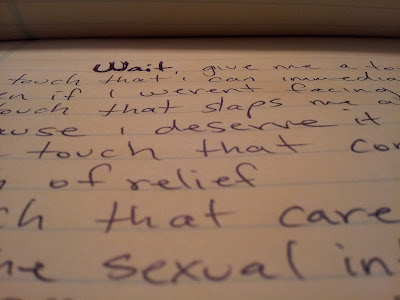 Wait, give me a to
touch that i can immedia
en if i weren't facing
touch that slaps me a
ause i deserve it
touch that
h of relief
ch that care
he sexual in